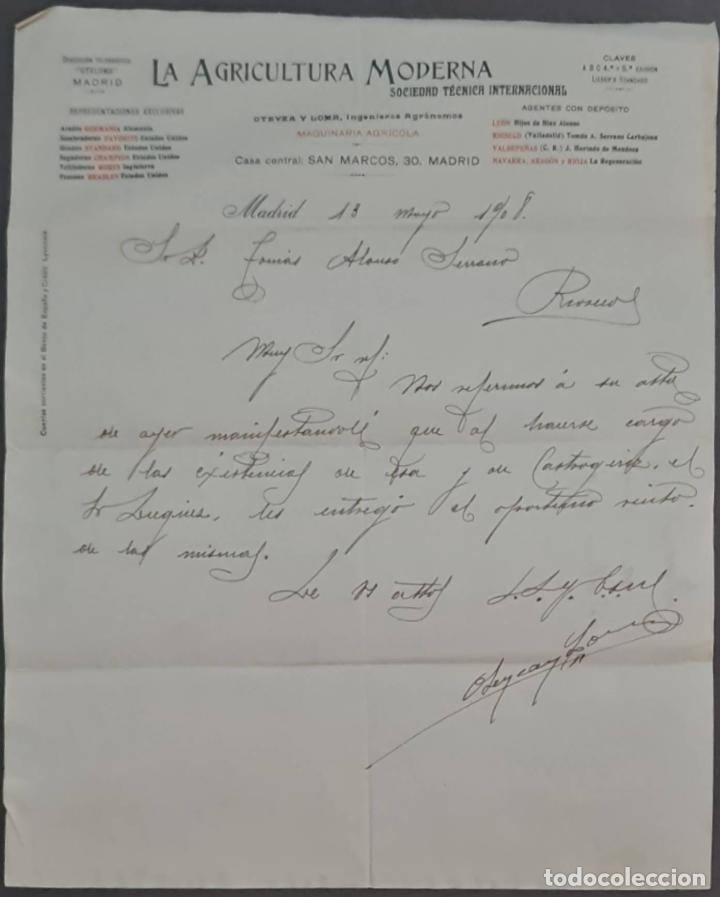 DIRECCIÓN TELEGRÁFICA
MADRID
LA AGRICULTURA MODERNA
SOCIEDAD TÉCNICA INTERNACIONAL
CLAVES
A B C 4.ª y 5.ª EDICIÓN
LIEBER'S STANDARD
REPRESENTACIONES EXCLUSIVAS
Arados GERMANIA Alemania
Sembradoras FAVORITE Estados Unidos
Gradas STANDARD Estados Unidos
Segadoras CHAMPION Estados Unidos
Trilladoras Inglaterra
Prensas Estados Unidos
OTEYZA Y LOMA, Ingenieros Agrónomos
MAQUINARIA AGRÍCOLA
Casa central: SAN MARCOS, 30. MADRID
AGENTES CON DEPÓSITO
LEÓN Hijos de Blas Alonso
RIOSECO (Valladolid) Tomás A. Serrano Carbajosa
VALDEPEÑAS (C. R.) J. Hurtado de Mendoza
NAVARRA, ARAGÓN y RIOJA La Regeneración
Cuentas corrientes en el Banco de España y Crédit Lyonnais
Madrid 13 Mayo 1908.
Sr. D. Tomás Alonso Serrano
Rioseco
Muy Sr. n/:
Nos referimos á su atta
de ayer manifestandole que al hacerse cargo
de las existencias de esa y de Castrogeriz, el
Sr les entregó el oportuno recibo
de las mismas.
De Vd attos S.S.
Oteyza y Loma
todocoleccion
todocoleccion.net